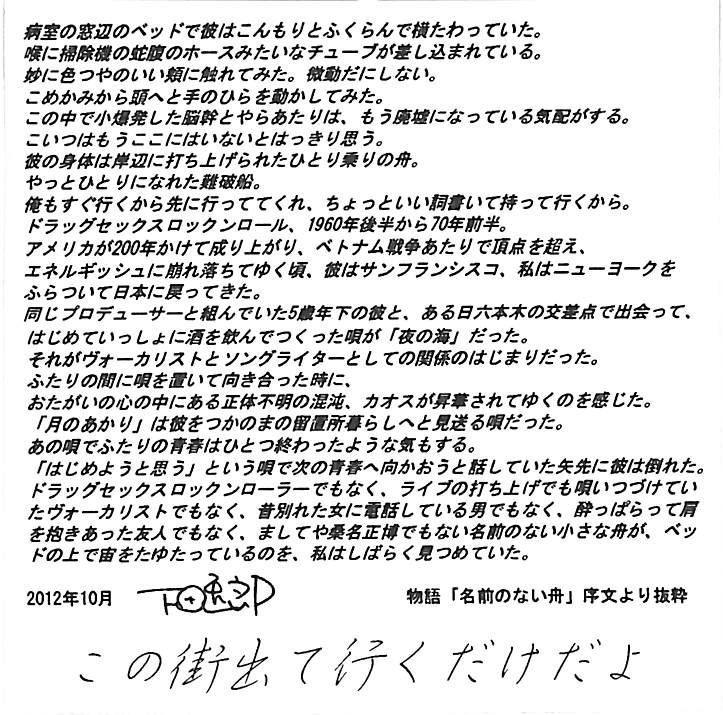 病室の窓辺のベッドで彼はこんもりとふくらんで横たわっていた。
喉に掃除機の蛇腹のホースみたいなチューブが差し込まれている。
妙に色つやのいい頬に触れてみた。微動だにしない。
こめかみから頭へと手のひらを動かしてみた。
この中で小爆発した脳幹とやらあたりは、もう廃墟になっている気配がする。
こいつはもうここにはいないとはっきり思う。
彼の身体は岸辺に打ち上げられたひとり乗りの舟。
やっとひとりになれた難破船。
俺もすぐ行くから先に行っててくれ、ちょっといい詞書いて持って行くから。
ドラッグセックスロックンロール、1960年後半から70年前半。
アメリカが200年かけて成り上がり、ベトナム戦争あたりで頂点を超え、
エネルギッシュに崩れ落ちてゆく頃、彼はサンフランシスコ、私はニューヨークを
ふらついて日本に戻ってきた。
同じプロデューサーと組んでいた5歳年下の彼と、ある日六本木の交差点で出会って、
はじめていっしょに酒を飲んでつくった唄が「夜の海」だった。
それがヴォーカリストとソングライターとしての関係のはじまりだった。
ふたりの間に唄を置いて向き合った時に、
おたがいの心の中にある正体不明の混沌、カオスが昇華されてゆくのを感じた。
「月のあかり」は彼をつかのまの留置所暮らしへと見送る唄だった。
あの唄でふたりの青春はひとつ終わったような気もする。
「はじめようと思う」という唄で次の青春へ向かおうと話していた矢先に彼は倒れた。
ドラッグセックスロックンローラーでもなく、ライブの打ち上げでも唄いつづけてい
たヴォーカリストでもなく、昔別れた女に電話している男でもなく、酔っぱらって肩
を抱きあった友人でもなく、ましてや桑名正博でもない名前のない小さな舟が、ベッ
ドの上で宙をたゆたっているのを、私はしばらく見つめていた。
2012年10月
物語「名前のない舟」序文より抜粋
この街出て行くだけだよ